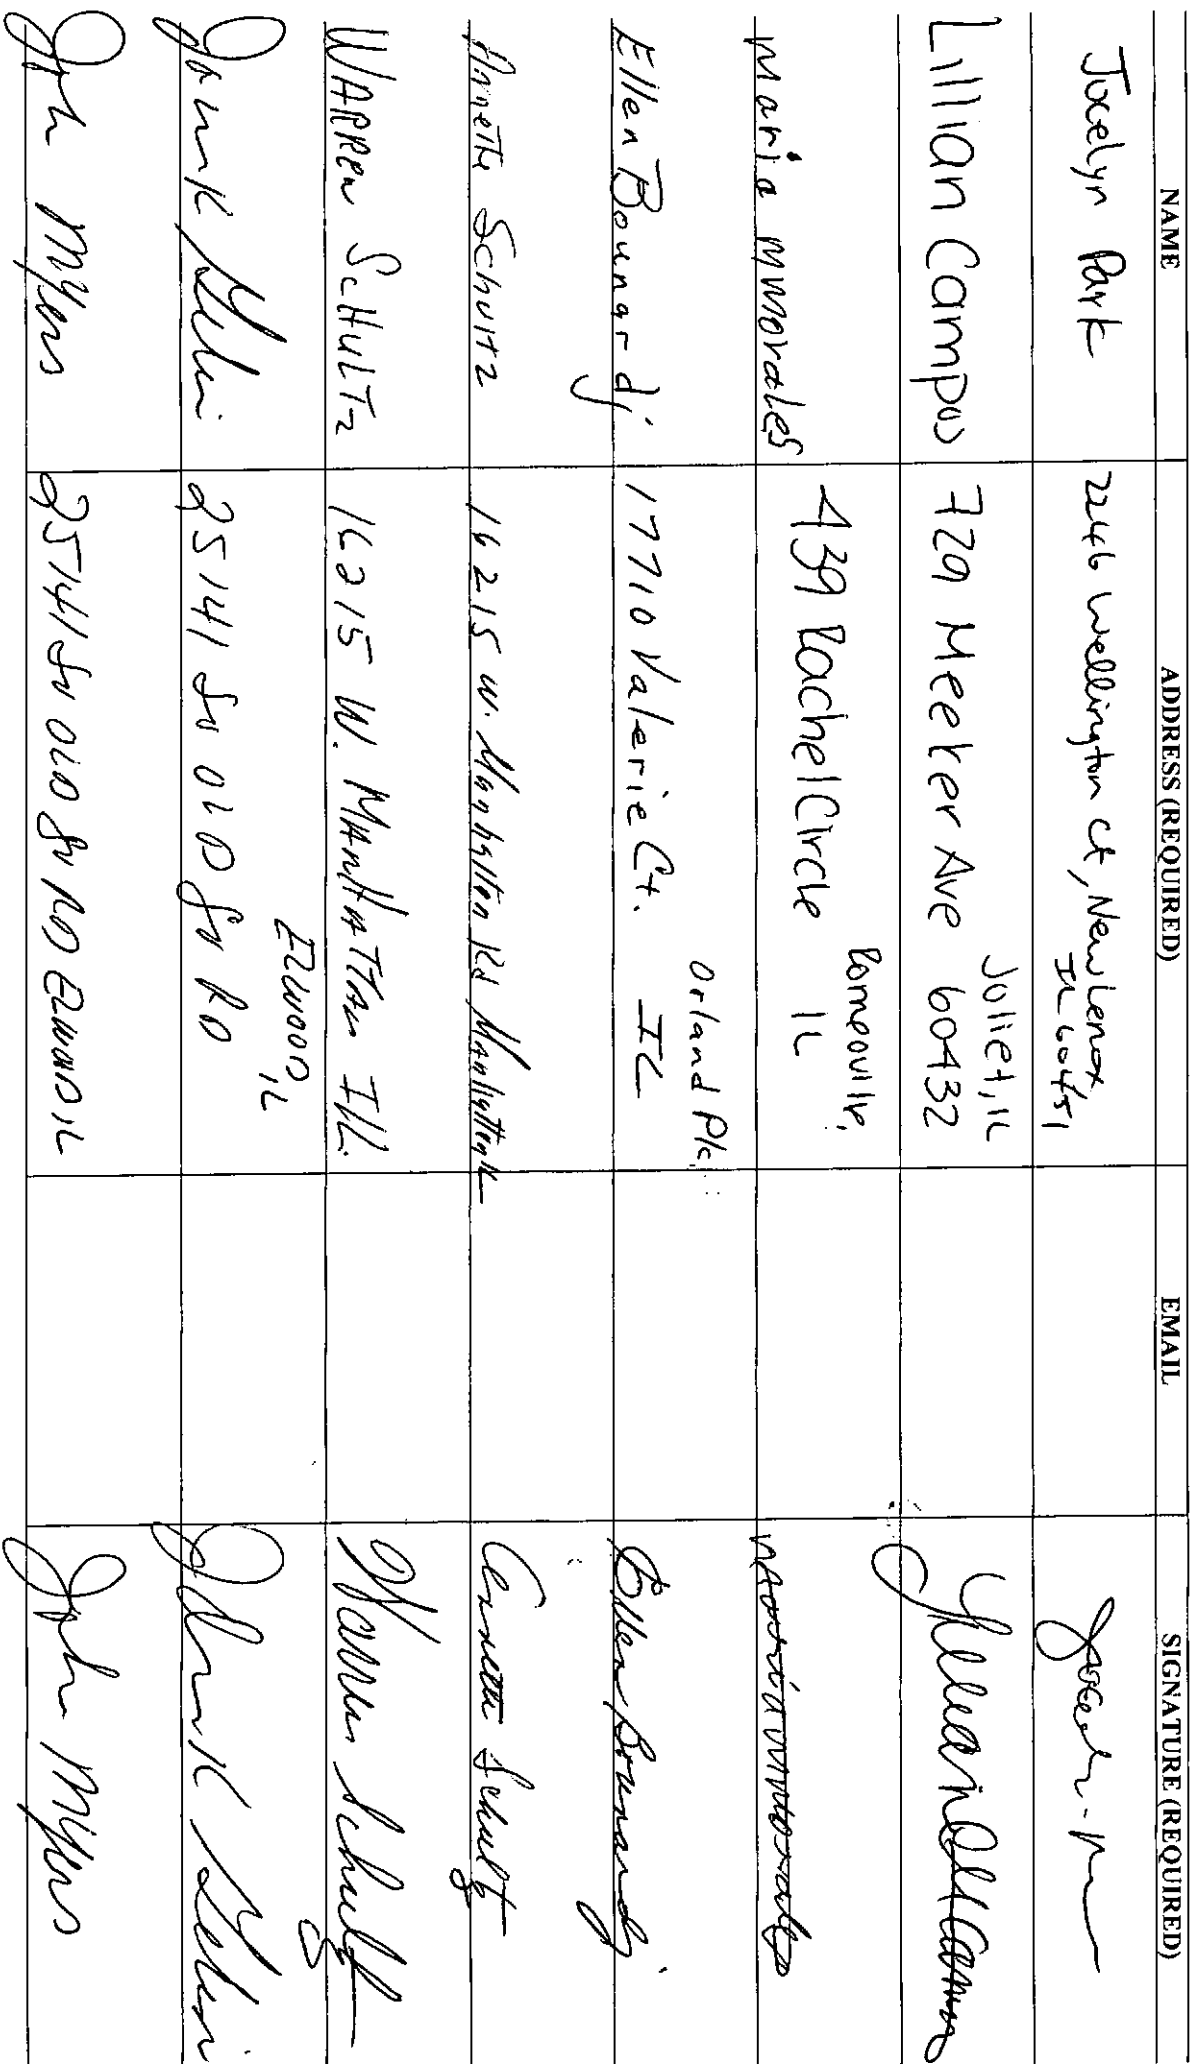 NAME ADDRESS (REQUIRED) EMAIL SIGNATURE (REQUIRED)
Jocelyn Park 2246 Wellington Ct, New Lenox,
IL 60451
Lillian Campos 729 Meeker Ave Joliet, IL
60432
Maria M Morales 439 Rachel Circle Romeoville,
IL
Ellen Bounardj 17710 Valerie Ct. Orland Pk.
IL Ellen Bounardj
Annette Schultz 16215 W. Manhattan Rd Manhattan IL Annette Schultz
WARREN SCHULTZ 16215 W. MANHATTAN ILL. Warren Schultz
25141 So OLD RD ELWOOD, IL
John Myers 25141 So OLD RD ELWOOD IL John Myers